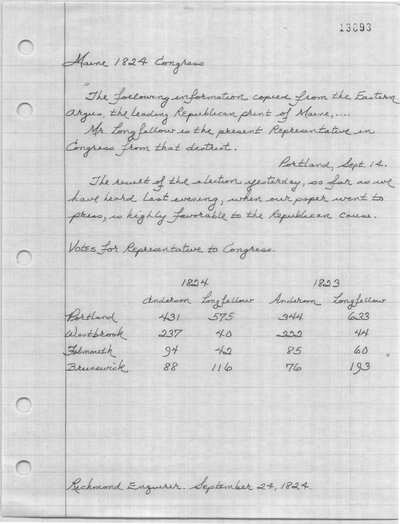 13693
Maine 1824 Congress
"The following information copied from the Eastern
Argus, the leading Republican print of Maine,....
Mr. Longfellow is the present Representative in
Congress from that district.
Portland, Sept. 14.
The result of the election yesterday, so far as we
have heard last evening, when our paper went to
press, is highly favorable to the Republican cause.
Votes for Representative to Congress.
1824 1823
Anderson Longfellow Anderson Longfellow
Portland 431 575 344 633
Westbrook 237 40 222 44
Falmouth 94 42 85 60
Brunswick 88 116 76 193 "
Richmond Enquirer. September 24, 1824.